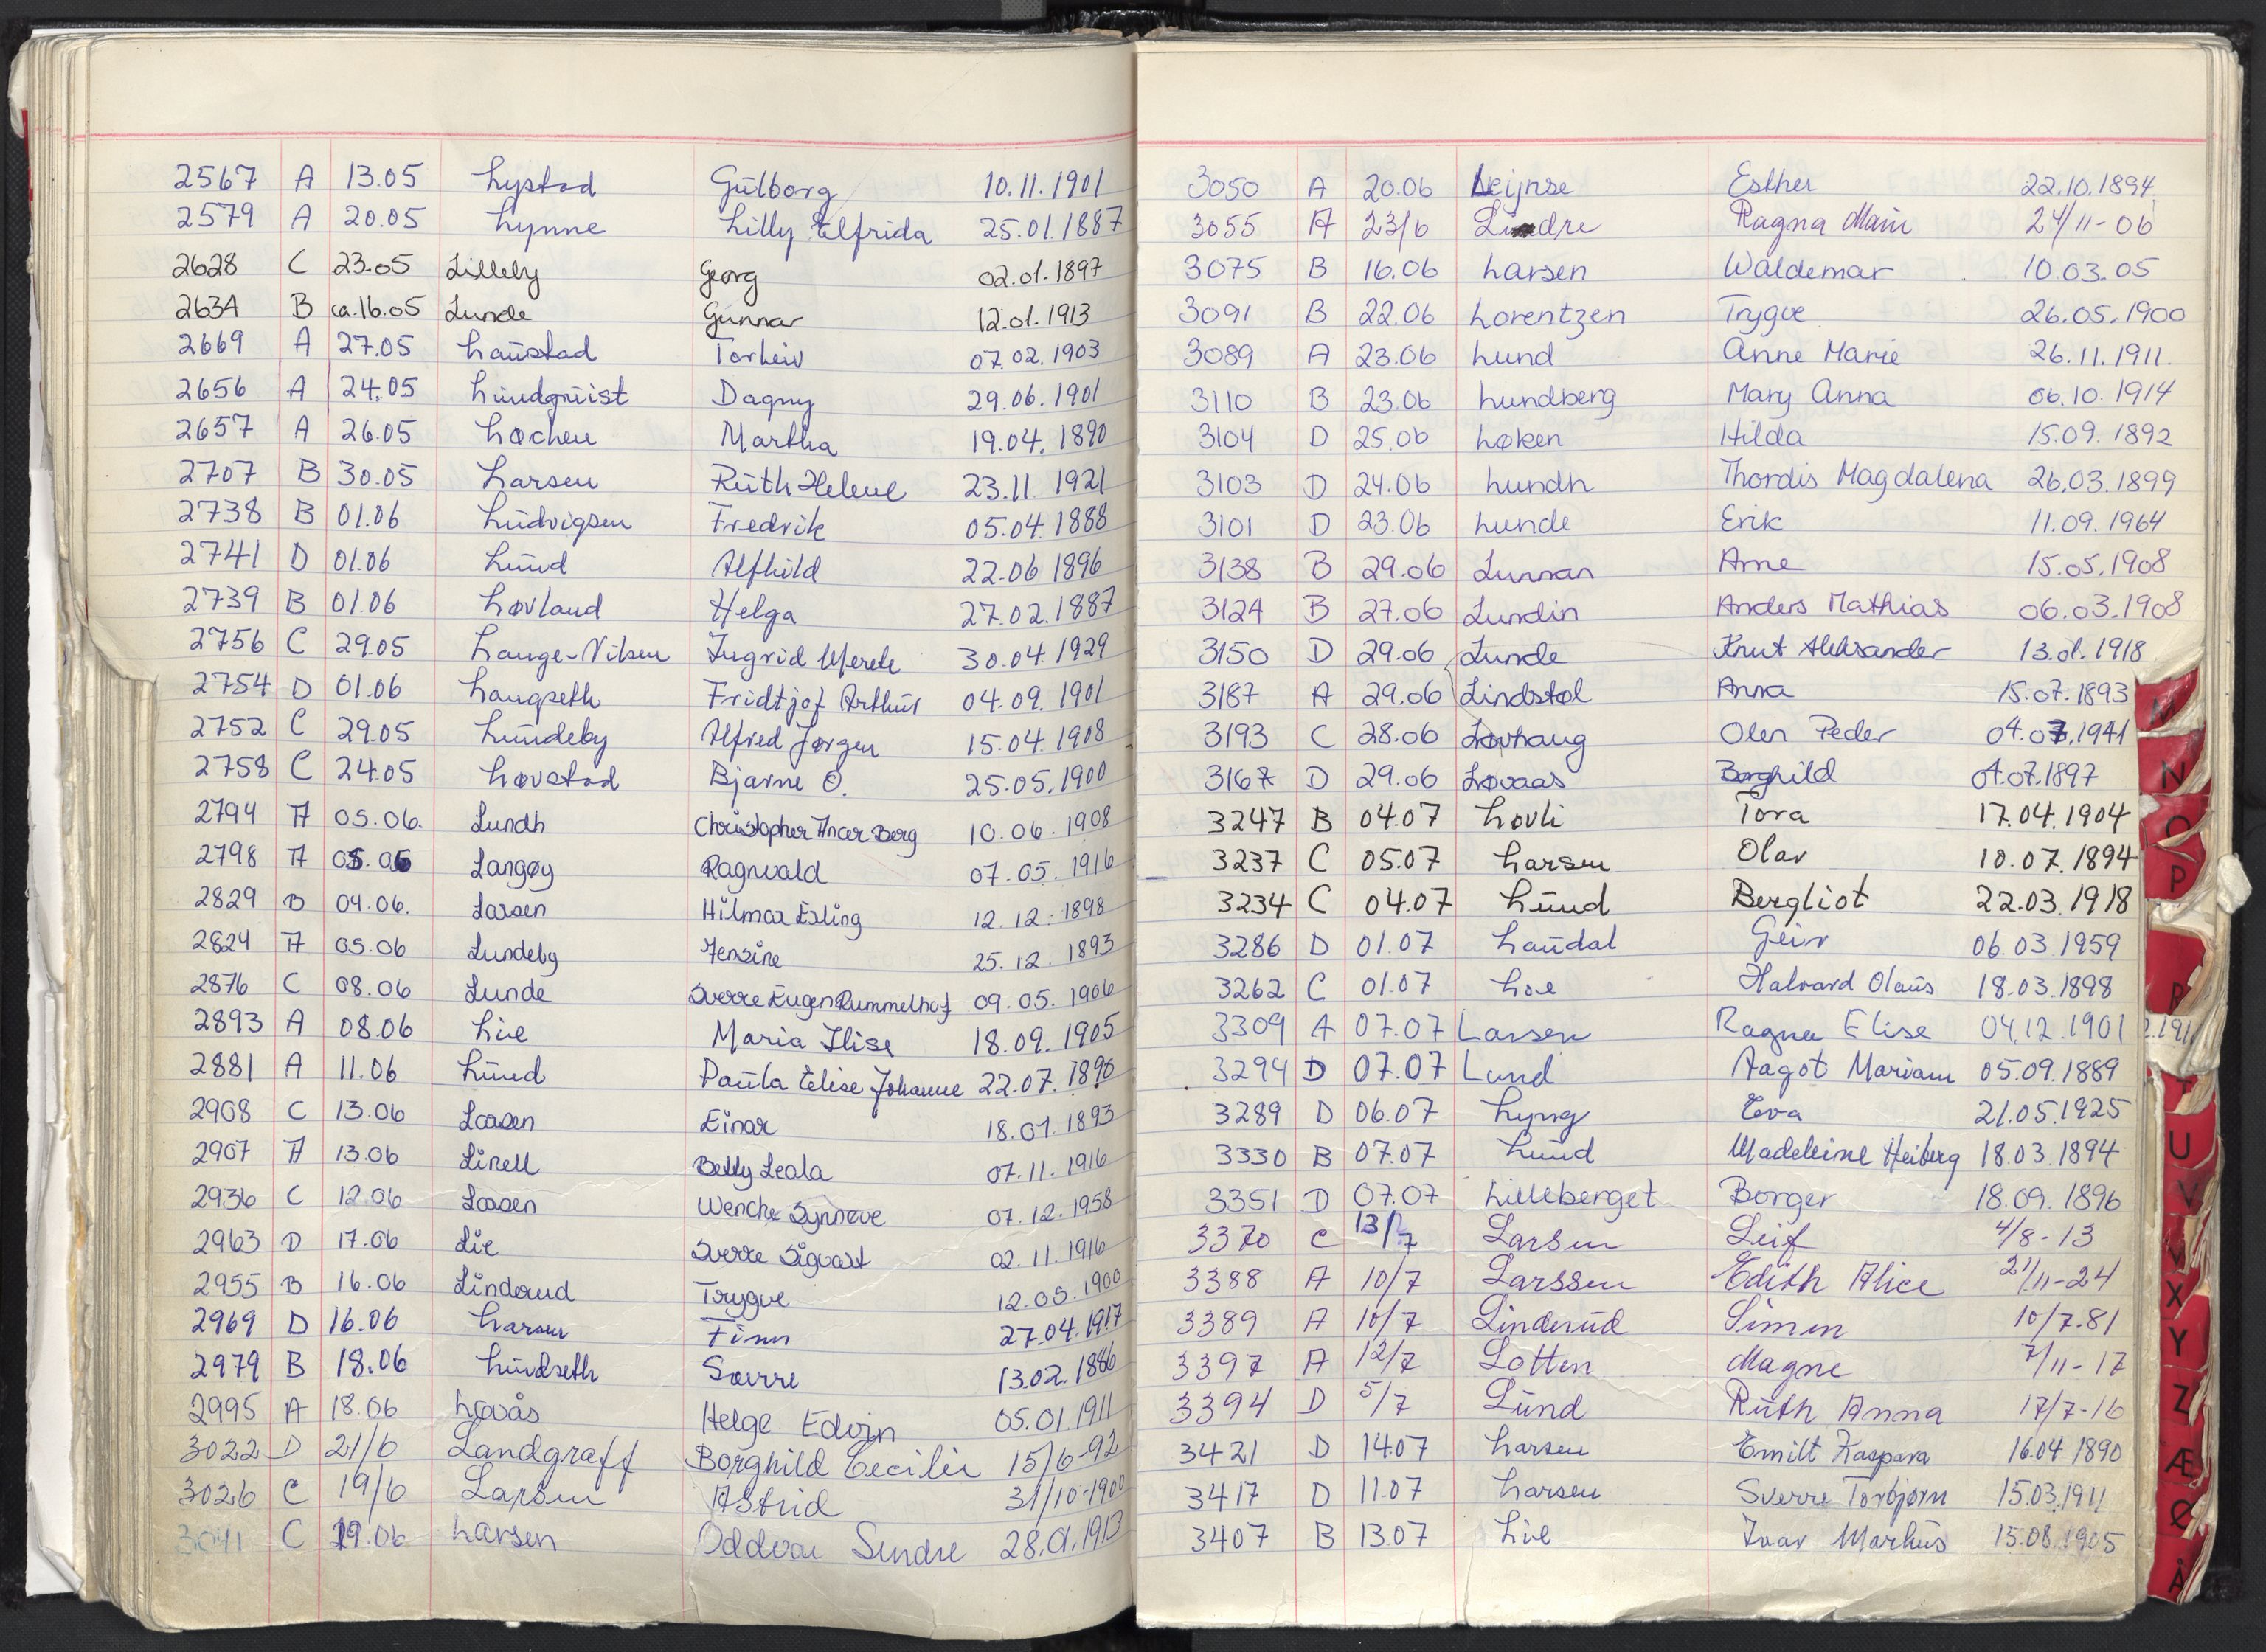 2567 A 13.05 Lystad Gülborg 10.11.1901
2579 A 20.05 Lynne Lilly Elfrida 25.01.1887
2628 C 23.05 Lilleby Georg 02.01.1897
2634 B ca.16.05 Lunde Gunnar 12.01.1913
2669 A 27.05 Laustad Torleiv 07.02.1903
2656 A 24.05 Lundquist Dagny 29.06.1901
2657 A 26.05 Lochen Martha 19.04.1890
2707 B 30.05 Larsen Ruth Helene 23.11.1921
2738 B 01.06 Ludvigsen Fredrik 05.04.1888
2741 D 01.06 Lund Alfhild 22.06.1896
2739 B 01.06 Løvland Helga 27.02.1887
2756 C 29.05 Lange-Nilsen Ingrid Merete 30.04.1929
2754 D 01.06 Langseth Fridtjof Arthur 04.09.1901
2752 C 29.05 Lundeby Alfred Jørgen 15.04.1908
2758 C 24.05 Løvstad Bjarne O. 25.05.1900
2794 A 05.06. Lundh Christopher Ancer Berg 10.06.1908
2798 A 05.06 Langøy Ragnvald 07.05.1916
2829 B 04.06. Larsen Hilmar Erling 12.12.1898
2824 A 05.06 Lundeby Jensine 25.12.1893
2876 C 08.06 Lunde Sverre Eugen Rummelhof 09.05.1906
2893 A 08.06 Lie Maria Elise 18.09.1905
2881 A 11.06 Lund Paula Elise Johanne 22.07.1890
2908 C 13.06 Larsen Einar 18.01.1893
2907 A 13.06 Linell Betty Leala 07.11.1916
2936 C 12.06 Larsen Wenche Synnøve 07.12.1958
2963 D 17.06 Lie Sverre Sigvart 02.11.1916
2955 B 16.06 Linderud Trygve 12.05.1900
2969 D 16.06 Larsen Finn 27.04.1917
2979 B 18.06 Lundseth Sverre 13.02.1886
2995 A 18.06 Løvås Helge Edvin 05.01.1911
3022 D 21/6 Landgraff Borghild Cecilie 15/6-92
3026 C 19/6 Larsen Astrid 31/10-1900
3041 C 19.06 Larsen Oddvar Sindre 28.01.1913
3050 A 20.06 Leijnse Esther 22.10.1894
3055 A 23/6 Lindre Ragna Marie 24/11-06
3075 B 16.06 Larsen Waldemar 10.03.05
3091 B 22.06 Lorentzen Trygve 26.05.1900
3089 A 23.06 Lund Anne Marie 26.11.1911.
3110 B 23.06 Lundberg Mary Anna 06.10.1914
3104 D 25.06 Løken Hilda 15.09.1892
3103 D 24.06 Lundh Thordis Magdalena 26.03.1899
3101 D 23.06 Lunde Erik 11.09.1964
3138 B 29.06 Lunnan Arne 15.05.1908
3124 B 27.06 Lundin Anders Mathias 06.03.1908
3150 D 29.06 Lunde Knut Aleksander 13.01.1918
3187 A 29.06 Lindstøl Anna 15.07.1893
3193 C 28.06 Løvhaug Olen Peder 04.07.1941
3167 D 29.06 Løvaas Borghild 01.07.1897
3247 B 04.07 Løvli Tora 17.04.1904
3237 C 05.07 Larsen Olav 10.07.1894
3234 C 04.07 Lund Bergliot 22.03.1918
3286 D 01.07 Laudal Geir 06.03.1959
3262 C 01.07 Loe Halvard Olaus 18.03.1898
3309 A 07.07 Larsen Ragna Elise 04.12.1901
3294 D 07.07 Lund Aagot Mariam 05.09.1889
3289 D 06.07 Lyng Eva 21.05.1925
3330 B 07.07 Lund Madeleine Heiberg 18.03.1894
3351 D 07.07 Lilleberget Borger 18.09.1896
3370 C 13/7 Larsen Leif 4/8-13
3388 A 10/7 Larssen Edith Alice 21/11-24
3389 A 10/7 Linderud Simen 10/7.81
3397 A 12/7 Lotten Magne 7/11-17
3394 D 5/7 Lund Ruth Anna 17/7-16
3421 D 14.07 Larsen Emilt Kaspara 16.04.1890
3417 D 11.07 Larsen Sverre Torbjørn 15.03.1911
3407 B 13.07 Lie Ivar Markus 15.08.1905
M
N
O
P
R
U
V
X
Y
Z
Æ
Ø
Å